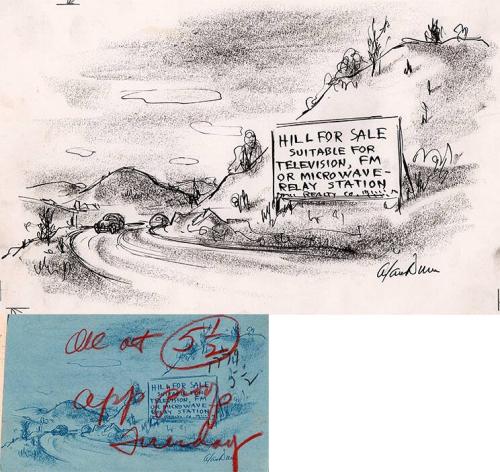 HILL FOR SALE
SUITABLE FOR
TELEVISION, FM
OR MICROWAVE-
RELAY STATION
REALTY CO.
Alan Dunn
One at 5½
app
Tuesday
HILL FOR SALE
SUITABLE FOR
TELEVISION, FM
OR MICROWAVE-
RELAY STATION
Alan Dunn